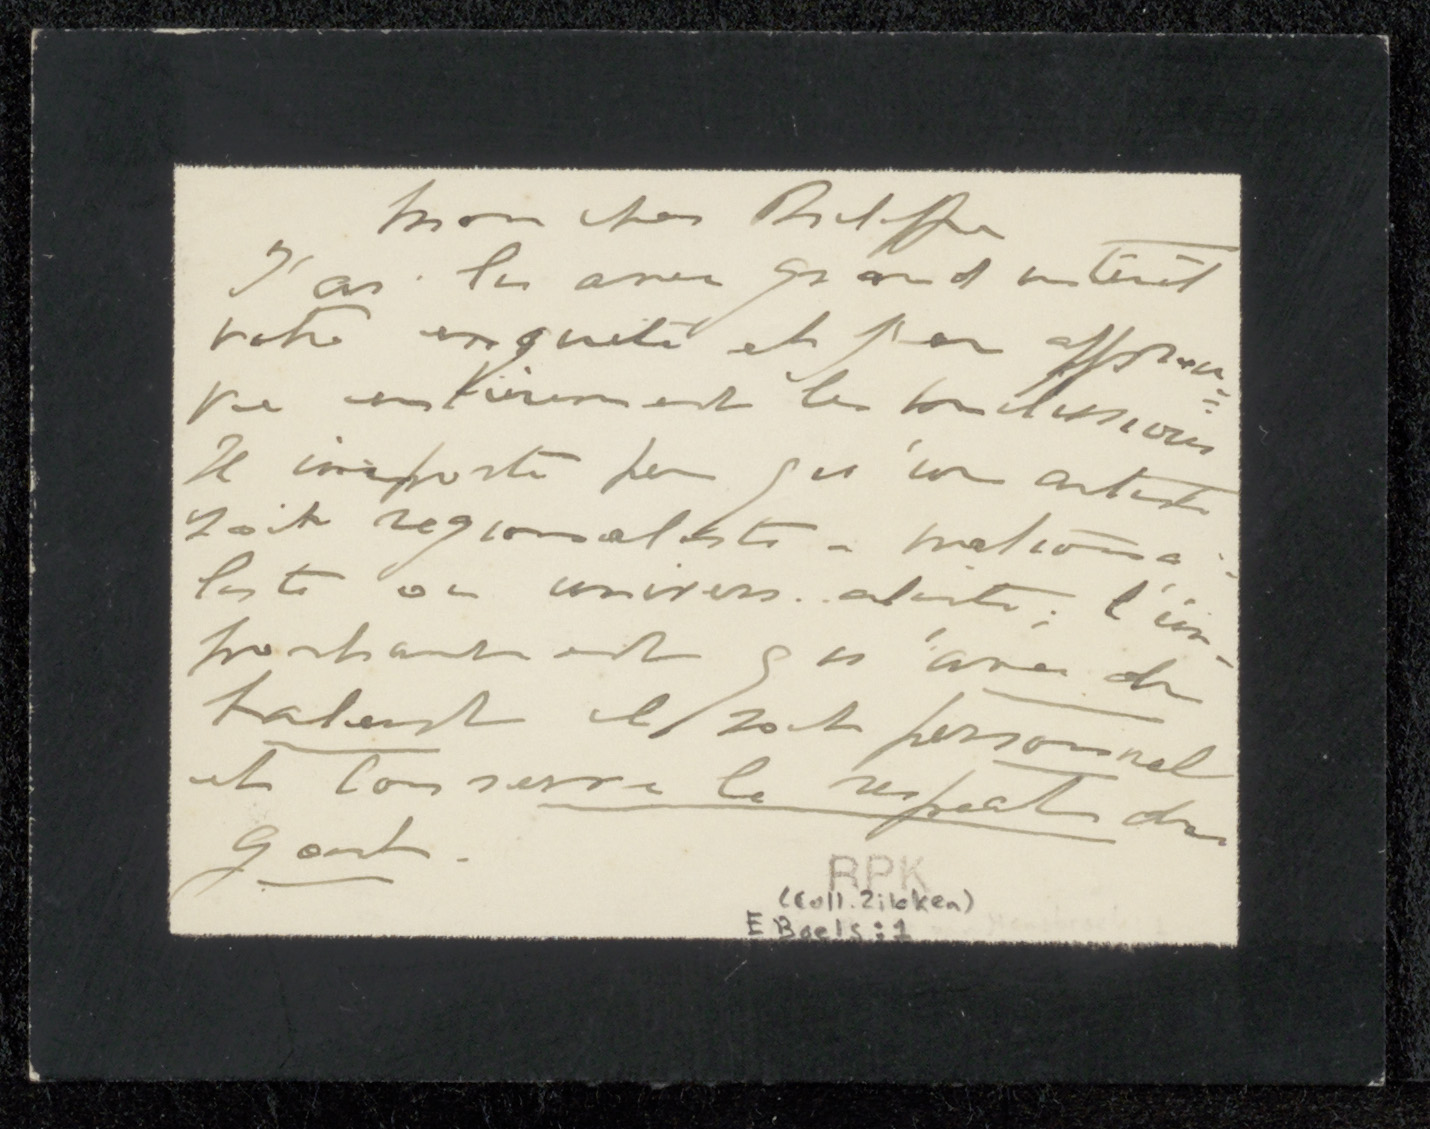 Mon cher Philippe
J'ai lu avec grand intérêt
votre enquête et j'en approu=
ve entièrement les conclusions
Il importe peu qu'un artiste
soit regionaliste - nationa-
liste ou univers.aliste; l'im-
portant est qu'avec du
talent il soit personnel
et conserve le respect du
gout.
RPK
(Coll. Zilcken)
E Baels:1